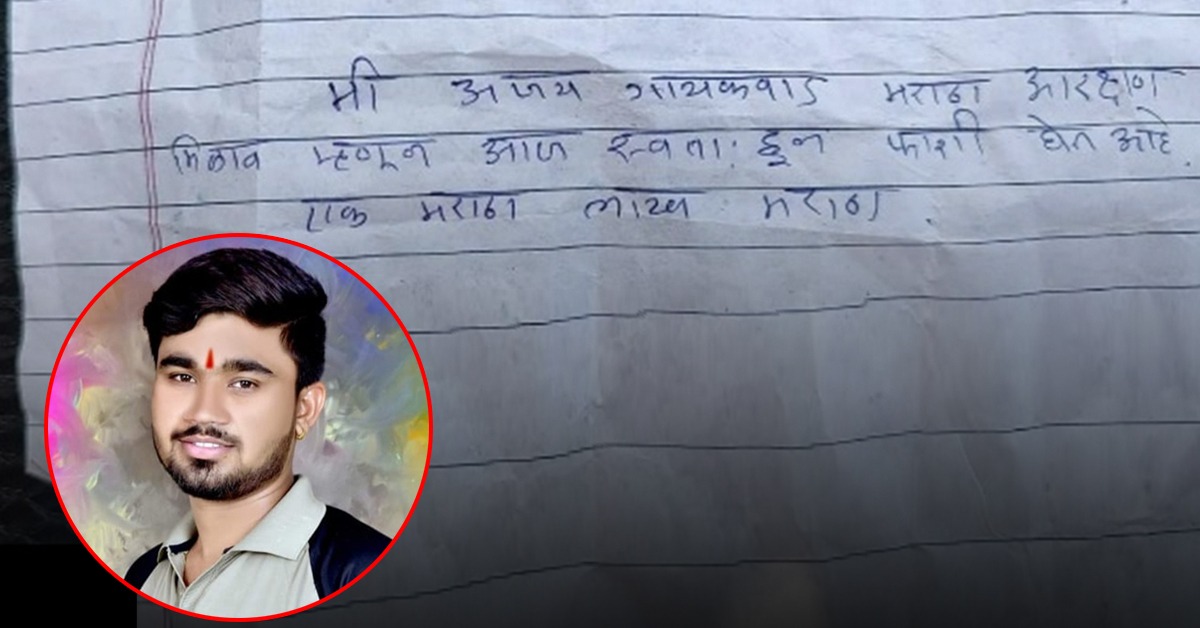 मी अजय गायकवाड मराठा आरक्षण
मिळाव म्हणून आज स्वता: हून फाशी घेत आहे.
एक मराठा लाख मराठा.